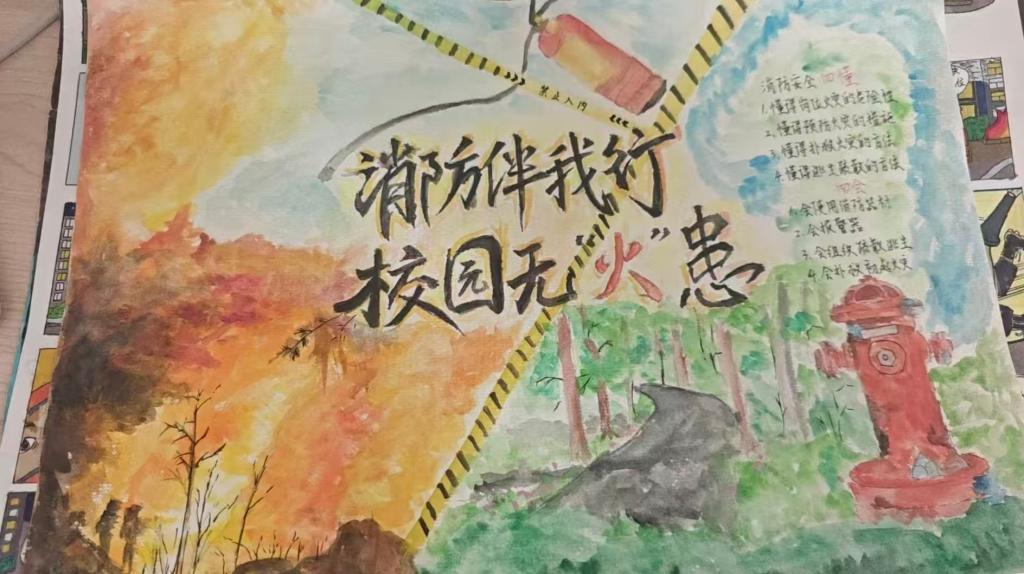 禁止入内
消防伴我行
校园无“火”患
消防安全四懂
1.懂得岗位火灾的危险性
2.懂得预防火灾的措施
3.懂得扑救火灾的方法
4.懂得逃生疏散的方法
四会
1.会使用消防器材
2.会报警器
3.会组织疏散逃生
4.会扑救初起火灾